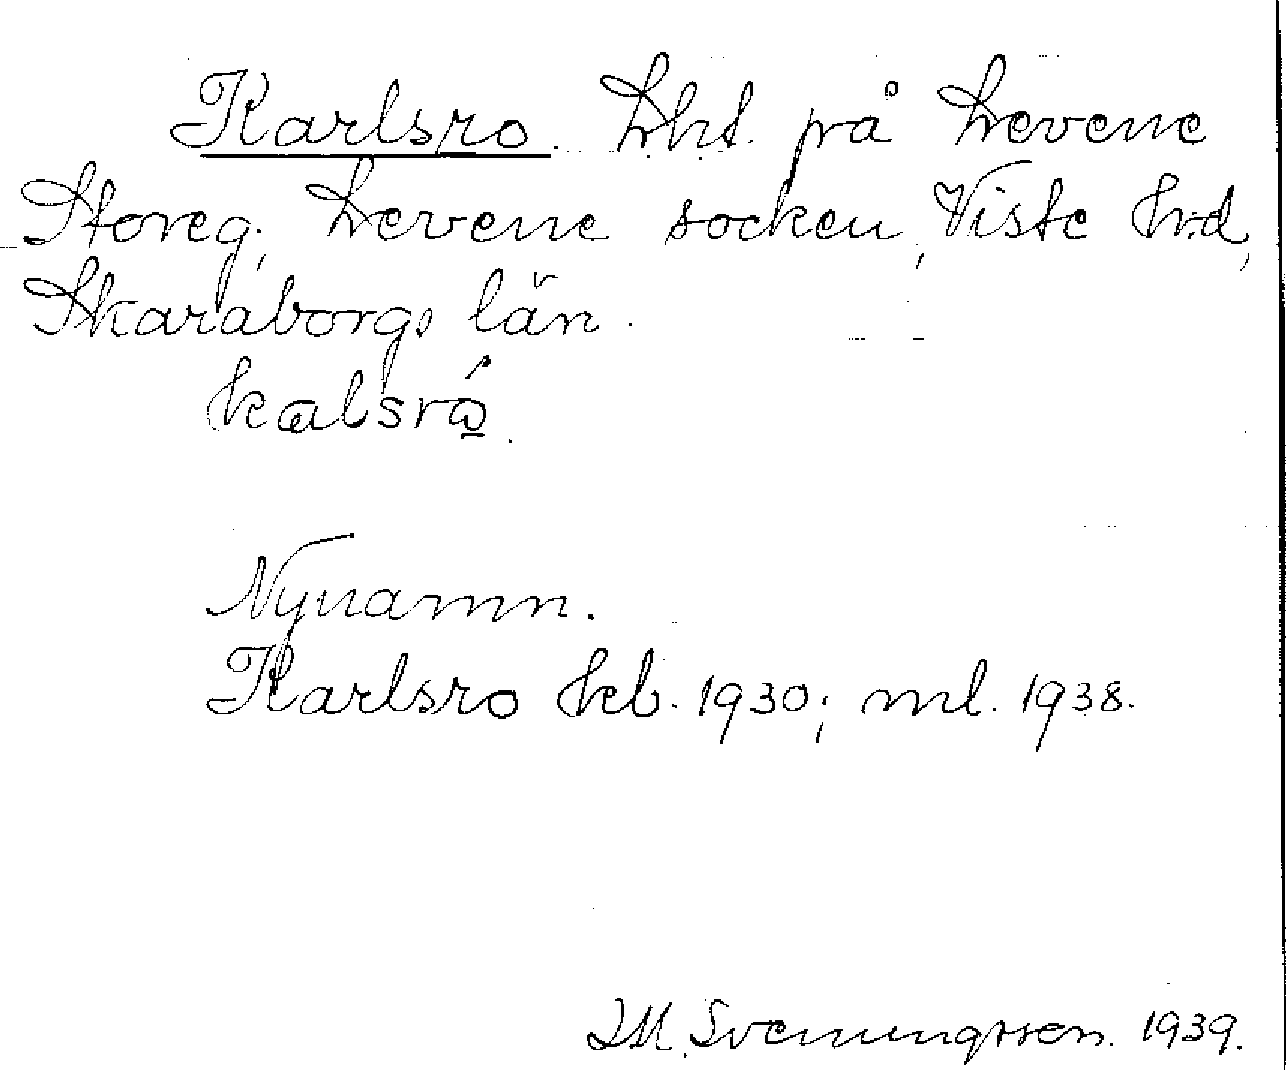 Karlsro. Lht. på Levene
Storeg., Levene socken, Viste hrd,
Skaraborgs län.
kalsrò̲.
Nynamn.
Karlsro kb. 1930; ml. 1938.
I.M. Svenungsson. 1939.